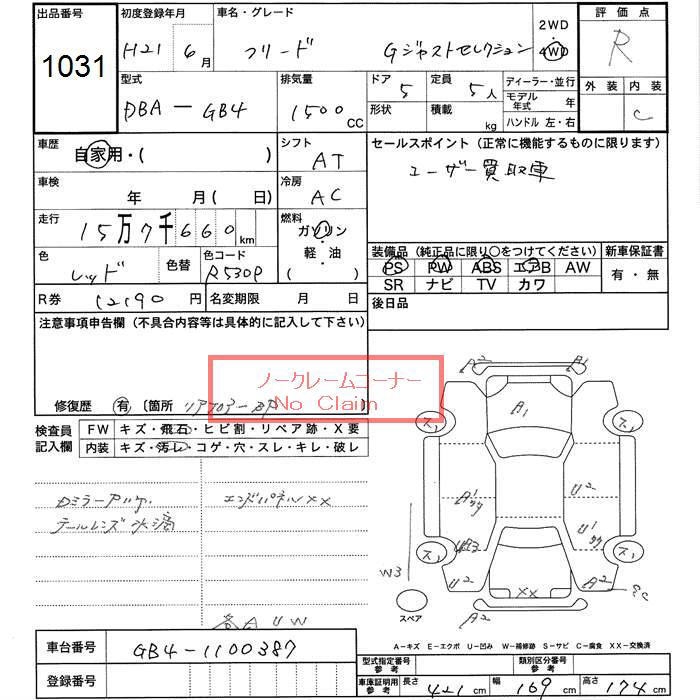 出品番号 初度登録年月 車名・グレード 2WD 評価点
1031 H21 6月 フリード Gジャストセレクション 4WD R
型式 排気量 ドア 定員 ディーラー・並行 外装 内装
DBA-GB4 1500CC 5 5人 モデル年式 年 C
形状 積載 kg ハンドル 左・右
車歴 自家用・( ) シフト AT セールスポイント(正常に機能するものに限ります)
ユーザー買取車
車検 年 月(日) 冷房 AC
走行 15万7千660km 燃料 ガソリン
軽・油
( )
色 レッド 色替 色コード R530P
装備品(純正品に限り○をつけてください) 新車保証書
PS PW ABS エアB AW 有・無
SR ナビ TV カワ
R券 12190円 名変期限 月 日 後日品
注意事項申告欄(不具合内容等は具体的に記入して下さい)
ノークレームコーナー
No Claim
修復歴 有 〔箇所 リアフロアーBP
検査員 FW キズ・飛石・ヒビ割・リペア跡・X要
記入欄 内装 キズ・汚レ・コゲ・穴・スレ・キレ・破レ
エンドパネルXX
テールレンズ水滴
各AUW
A2 A1
A1
ス1 ス1
A1 U2
U1
ス1 ス1
W3 U2 XX A2
スペア A2
A-キズ E-エクボ U-凹み W-補修跡 S-サビ C-腐食 XX-交換済
車台番号 GB4-1100387
型式指定番号 参考 類別区分番号 参考
登録番号
車庫証明用 参考 長さ 421cm 幅 169cm 高さ 174cm